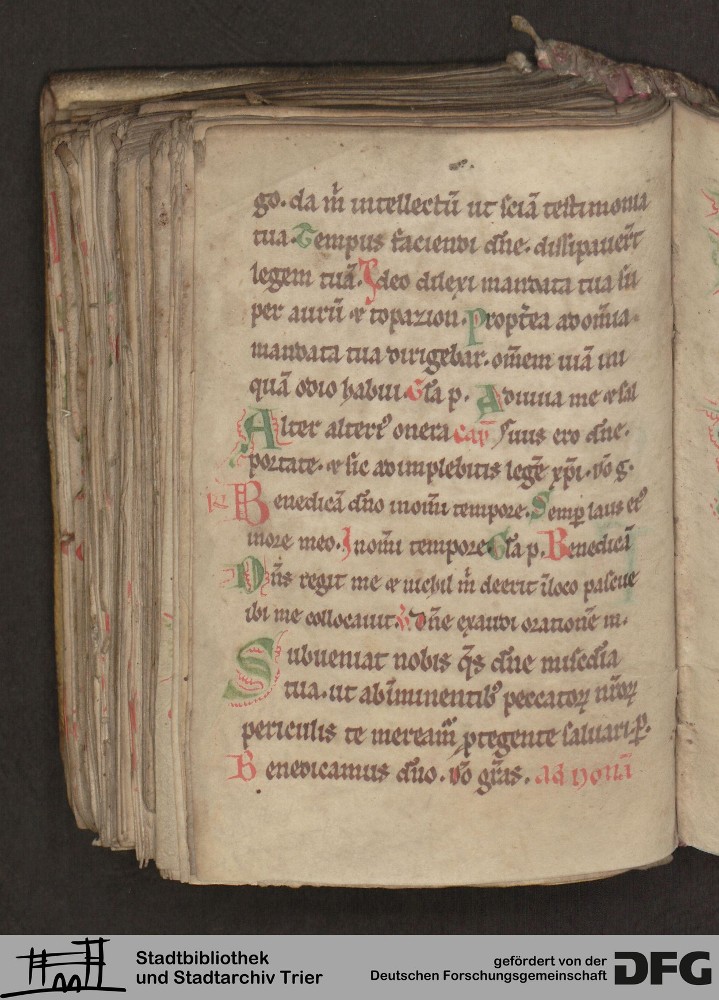 go. da m̄ intellectū ut sciā testimonia
tua. Tempus faciendi dn̄e. dissipauer̄t
legem tuā. Ideo dilexi mandata tua su
per aurū ⁊ topazion. Propt̄ea ad om̄ia
mandata tua dirigebar. om̄em uiā ini
quā odio habui Gl̄a p. Adiuua me ⁊ sal
Alter alteri᷒ onera cap̄ Suus ero dn̄e.
portate. ⁊ sic adimplebitis legē xp̄i. dō g.
Benedicā dn̄o in om̄i tempore. Semp̄ laus ei᷒
in ore meo. In om̄i tempore Gl̄a p. Benedicā
Dn̄s regit me ⁊ nichil m̄ deerit ī loco pascue
ibi me collocauit. Dn̄e exaudi orationē m.
Subueniat nobis q̄s dn̄e mis̄cdīa
tua. ut ab īminentib᷒ peccatoꝝ nr̄oꝝ
periculis te meream̄ ꝓtegente saluari. p̄.
Benedicamus dn̄o. dō gr̄as. ad nonā
Stadtbibliothek
und Stadtarchiv Trier
gefördert von der
Deutschen Forschungsgemeinschaft DFG